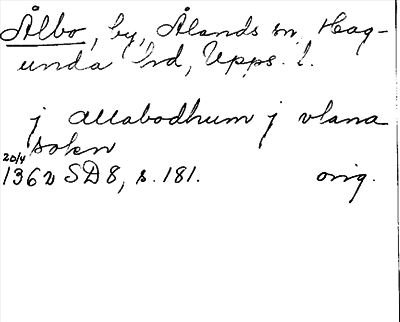 Ålbo, by, Ålands sn, Hag-
unda hd, Upps. l.
j allabodhum j vlana
sokn
20/4
1362 SD 8, s. 181. orig.